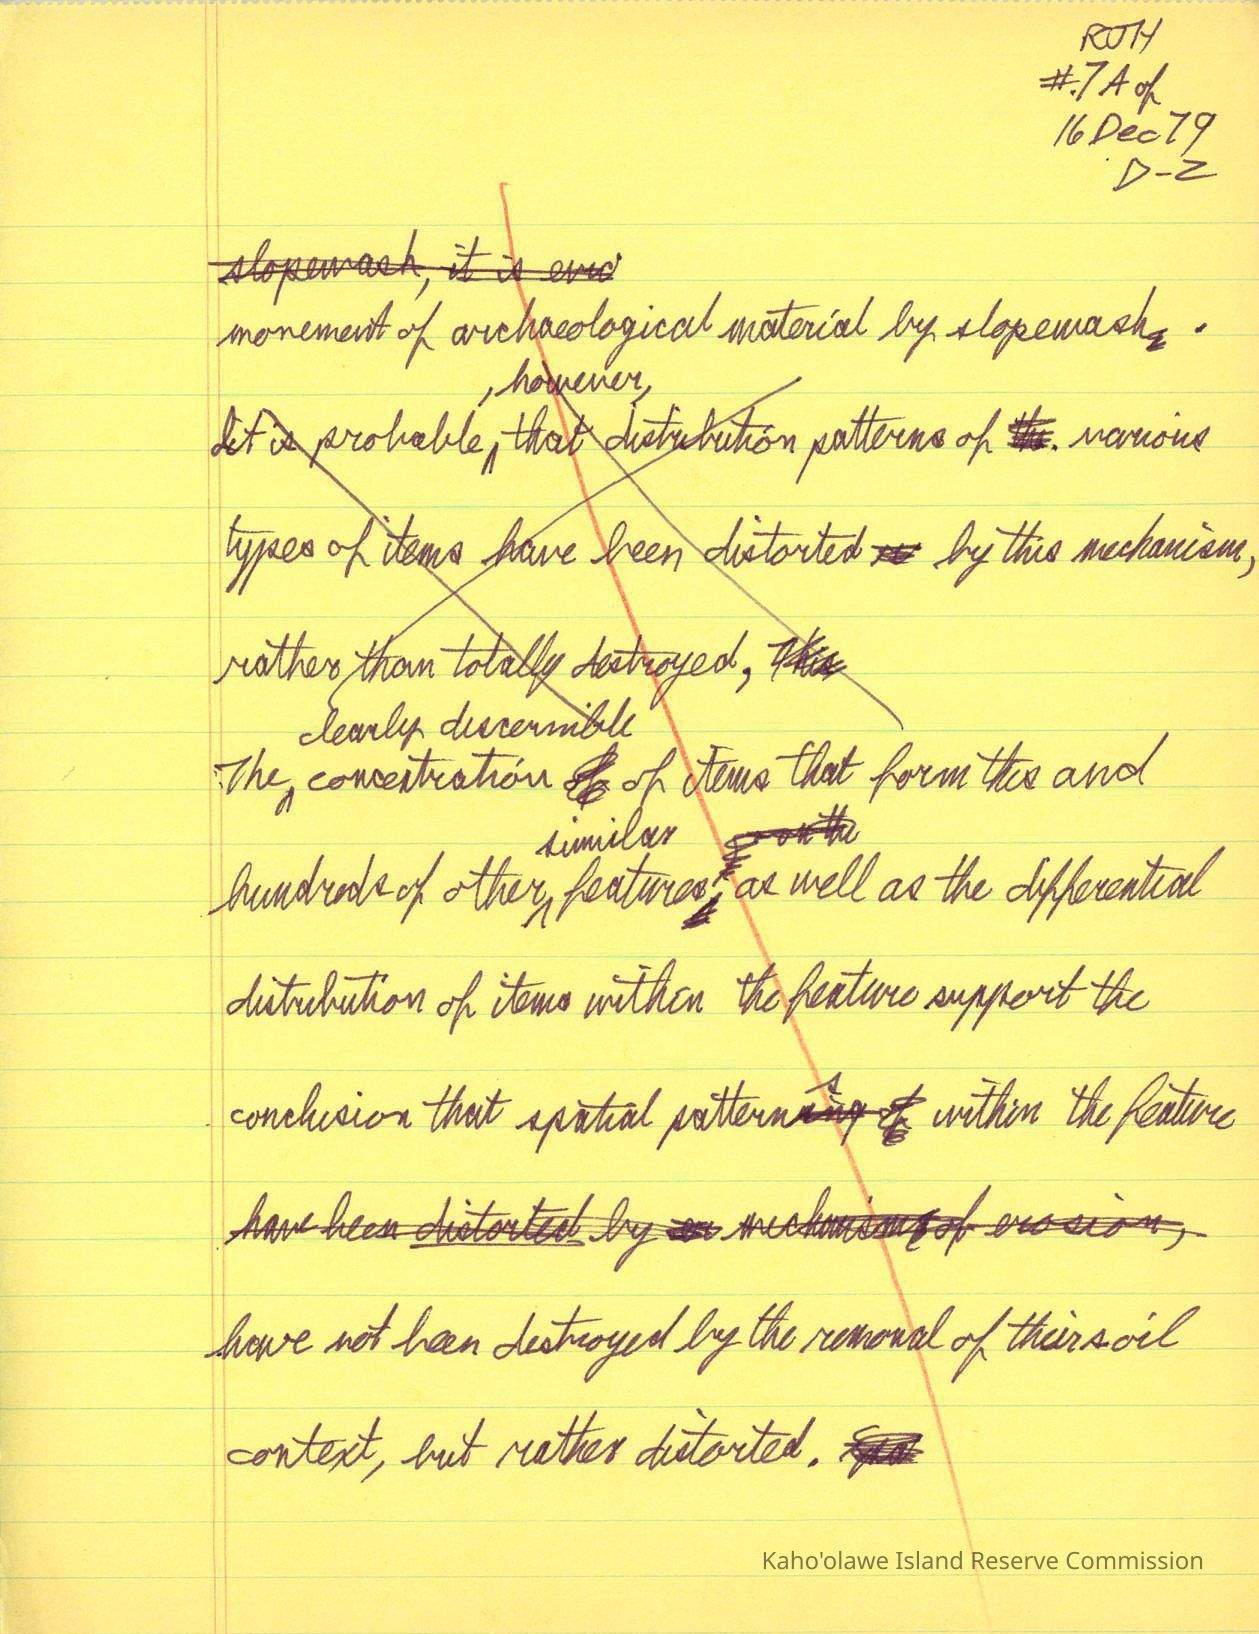 RUTH
#7A of
16 Dec 79
D-2
slopewash, it is evid
movement of archaeological material by slopewash.
, however,
It is probable, that distribution patterns of the various
types of items have been distorted by this mechanism,
rather than totally destroyed, This
clearly discernible
The concentration of of items that form this and
similar on the
hundreds of other features, as well as the differential
distribution of items within the feature support the
s
conclusion that spatial patterning of within the feature
have been distorted by mechanisms of erosion,
have not been destroyed by the removal of their soil
context, but rather distorted.
Kaho'olawe Island Reserve Commission